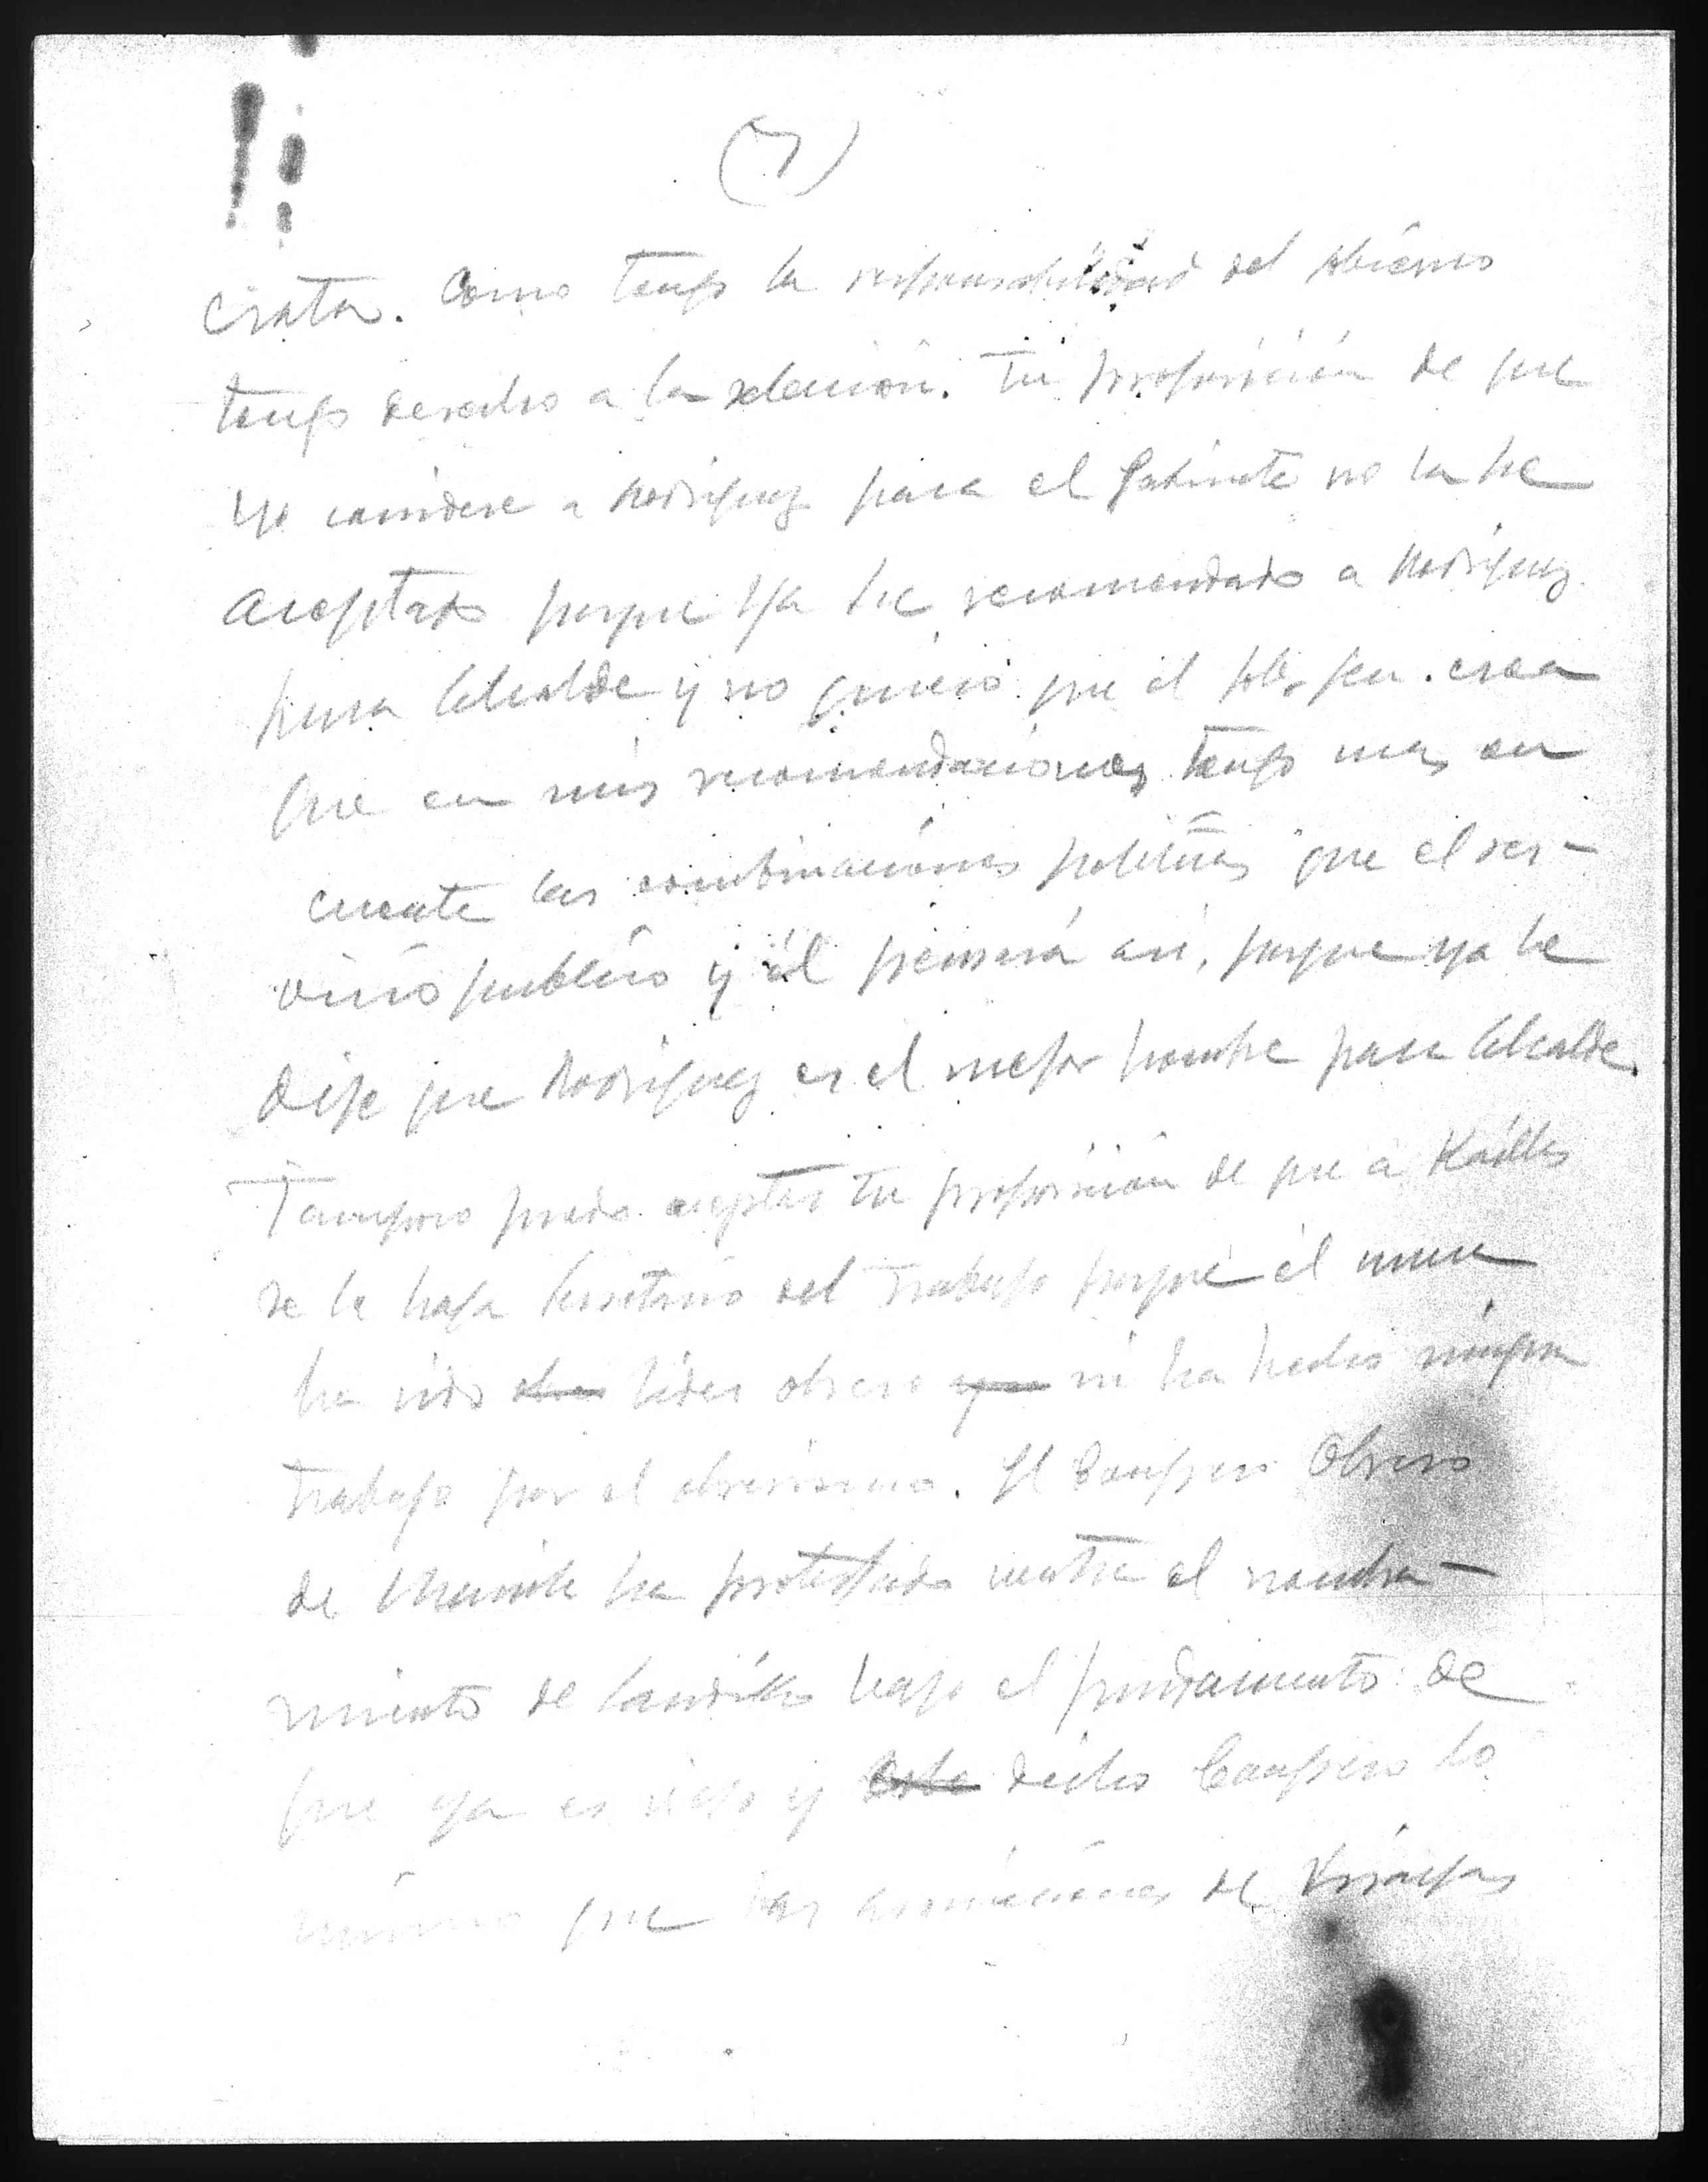 (7)
crata. Como tengo la responsabilidad del
tengo derecho a la selección. Tu proposición de que
yo considere a Rodriguez para el Gabinete no la he
aceptado porque ya he recomendado a Rodriguez
para Alcalde y no quiero que el Gob. Gen. crea
que en mis recomendaciones tengo mas en
cuenta las combinaciones politicas que el ser-
vicio publico y él pensará asi, porque ya le
dije que Rodriguez es el mejor hombre para Alcalde.
Tampoco puedo aceptar tu proposición de que a
se le haga Secretario del Trabajo porque él nunca
ha sido lider obrero ni ha hecho ningun
trabajo por el obrerismo. El Congreso Obrero
de Manila ha protestado contra el nombra-
miento de bajo el fundamento de
que ya es viejo y dicho Congreso lo
mismo que las asociaciones de